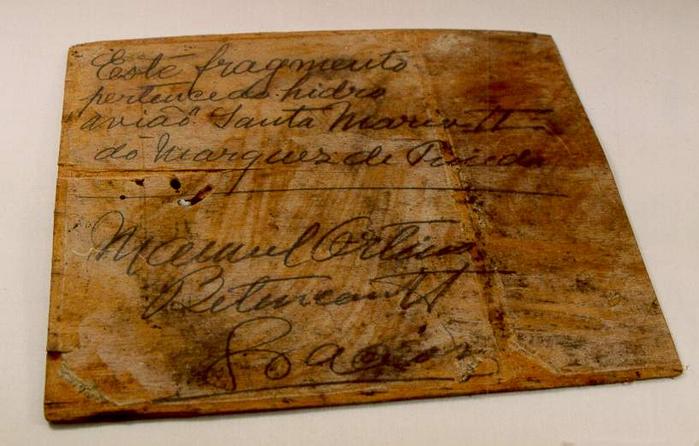 Este fragmento
pertence ao hidro
avião Santa Maria II
do Marquez de Pinedo
Manuel Ortins
Betencourt